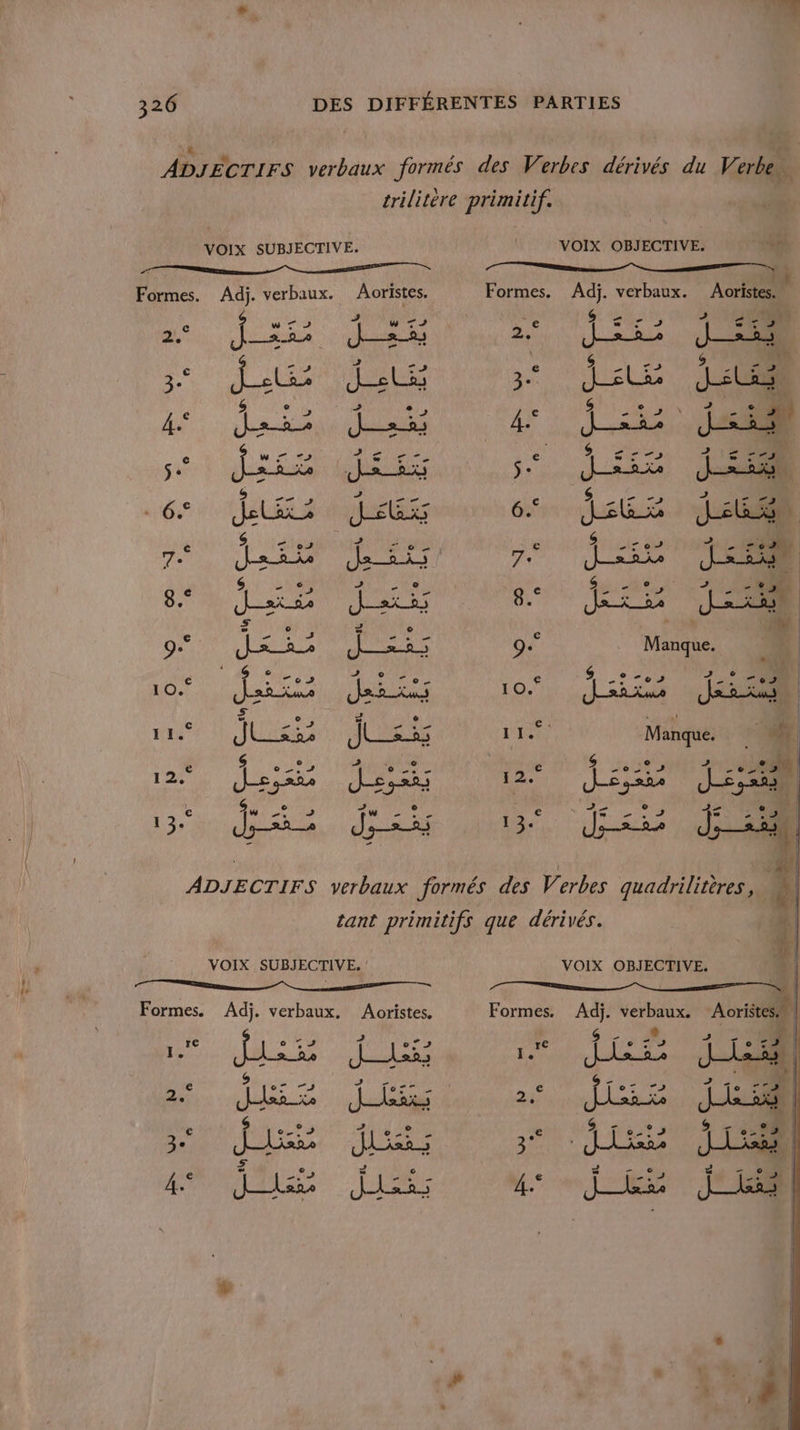 326 DES DIFFÉRENTES PARTIES
ADJECTIFS verbaux formés des Verbes dérivés du Verbe
trilitère primitif.
VOIX SUBJECTIVE. VOIX OBJECTIVE.
Formes. Adj. verbaux. Aoristes. Formes. Adj. verbaux. Aoristes.
2.e مُفَعِّلٌ يُفَعِّلُ 2.e مُفَعَّلٌ يُفَعَّلُ
3.e مُفَاعِلٌ يُفَاعِلُ 3.e مُفَاعَلٌ يُفَاعَلُ
4.e مُفْعِلٌ يُفْعِلُ 4.e مُفْعَلٌ يُفْعَلُ
5.e مُتَفَعِّلٌ يَتَفَعَّلُ 5.e مُتَفَعَّلٌ يُتَفَعَّلُ
6.e مُتَفَاعِلٌ يَتَفَاعَلُ 6.e مُتَفَاعَلٌ يُتَفَاعَلُ
7.e مُنْفَعِلٌ يَنْفَعِلُ 7.e مُنْفَعَلٌ يُنْفَعَلُ
8.e مُفْتَعِلٌ يَفْتَعِلُ 8.e مُفْتَعَلٌ يُفْتَعَلُ
9.e مُفْعَلٌّ يَفْعَلُّ 9.e Manque.
10.e مُسْتَفْعِلٌ يَسْتَفْعِلُ 10.e مُسْتَفْعَلٌ يُسْتَفْعَلُ
11.e مُفْعَالٌّ يَفْعَالُّ 11.e Manque.
12.e مُفْعَوْعِلٌ يَفْعَوْعِلُ 12.e مُفْعَوْعَلٌ يُفْعَوْعَلُ
13.e مُفْعَوِّلٌ يَفْعَوِّلُ 13.e مُفْعَوَّلٌ يُفْعَوَّلُ
ADJECTIFS verbaux formés des Verbes quadrilitères,
tant primitifs que dérivés.
VOIX SUBJECTIVE. VOIX OBJECTIVE.
Formes. Adj. verbaux. Aoristes. Formes. Adj. verbaux. Aoristes.
1.re مُفَعْلِلٌ يُفَعْلِلُ 1.re مُفَعْلَلٌ يُفَعْلَلُ
2.e مُتَفَعْلِلٌ يَتَفَعْلَلُ 2.e مُتَفَعْلَلٌ يُتَفَعْلَلُ
3.e مُفْعَنْلِلٌ يَفْعَنْلِلُ 3.e مُفْعَنْلَلٌ يُفْعَنْلَلُ
4.e مُفْعَلِلٌّ يَفْعَلِلُّ 4.e مُفْعَلَلٌّ يُفْعَلَلُّ